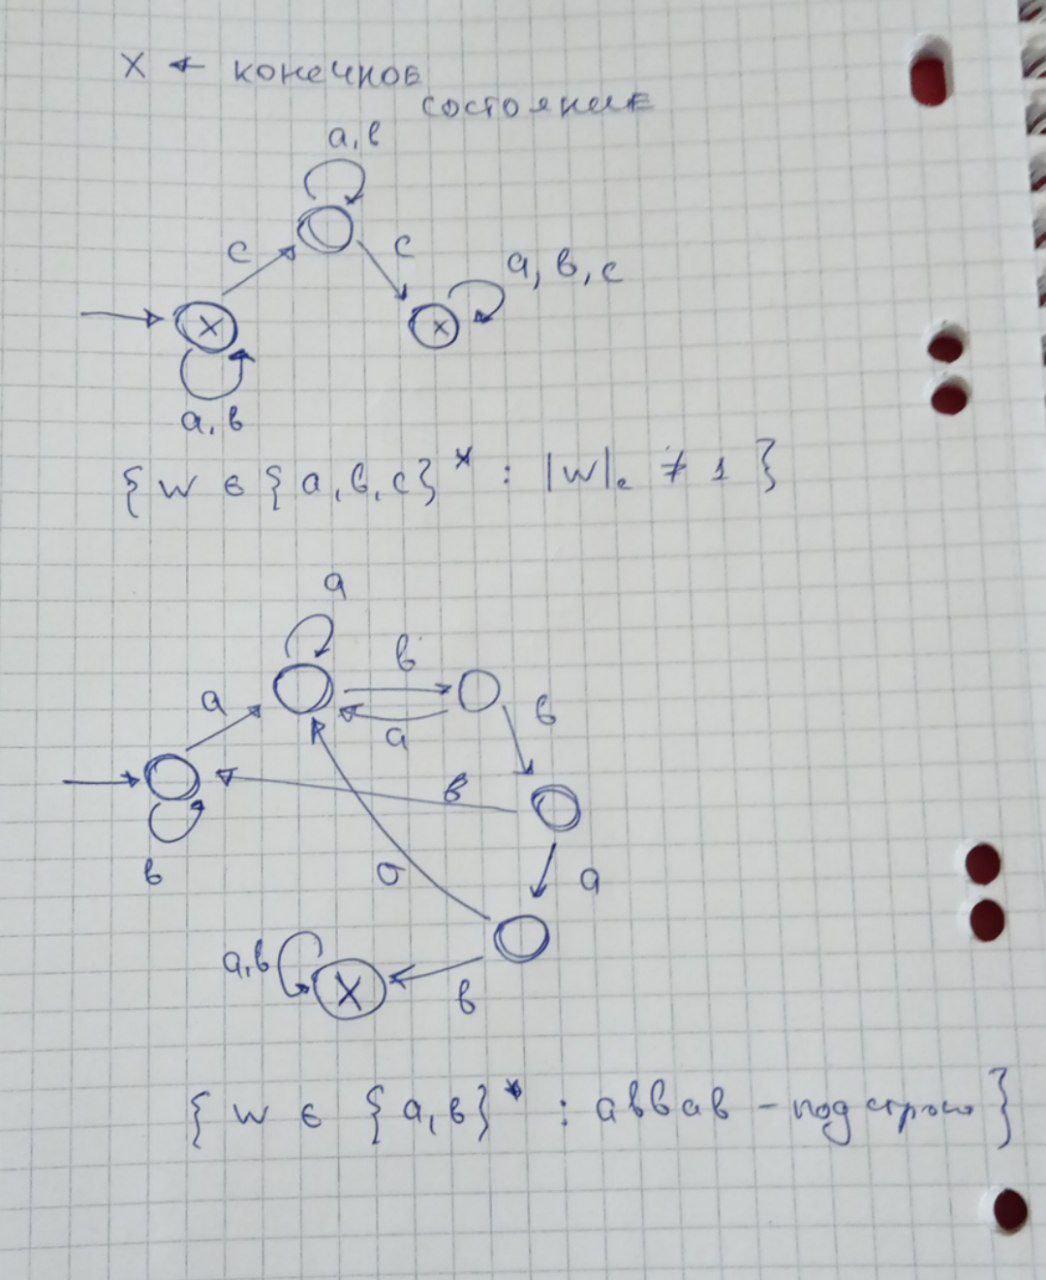 x ← конечное
состояние
a, b
c
c
a, b, c
x
x
a, b
{ w ∈ { a, b, c }* : |w|c ≠ 1 }
a
b
a
a
b
b
b
a
a
a, b
x
b
{ w ∈ { a, b }* : abbab – под строка }